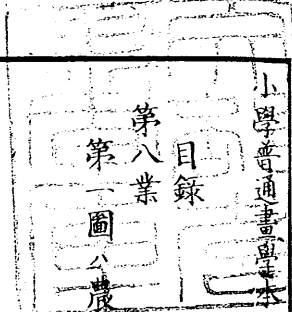 小學普通畫學本
目錄
第八業
第一圖八農